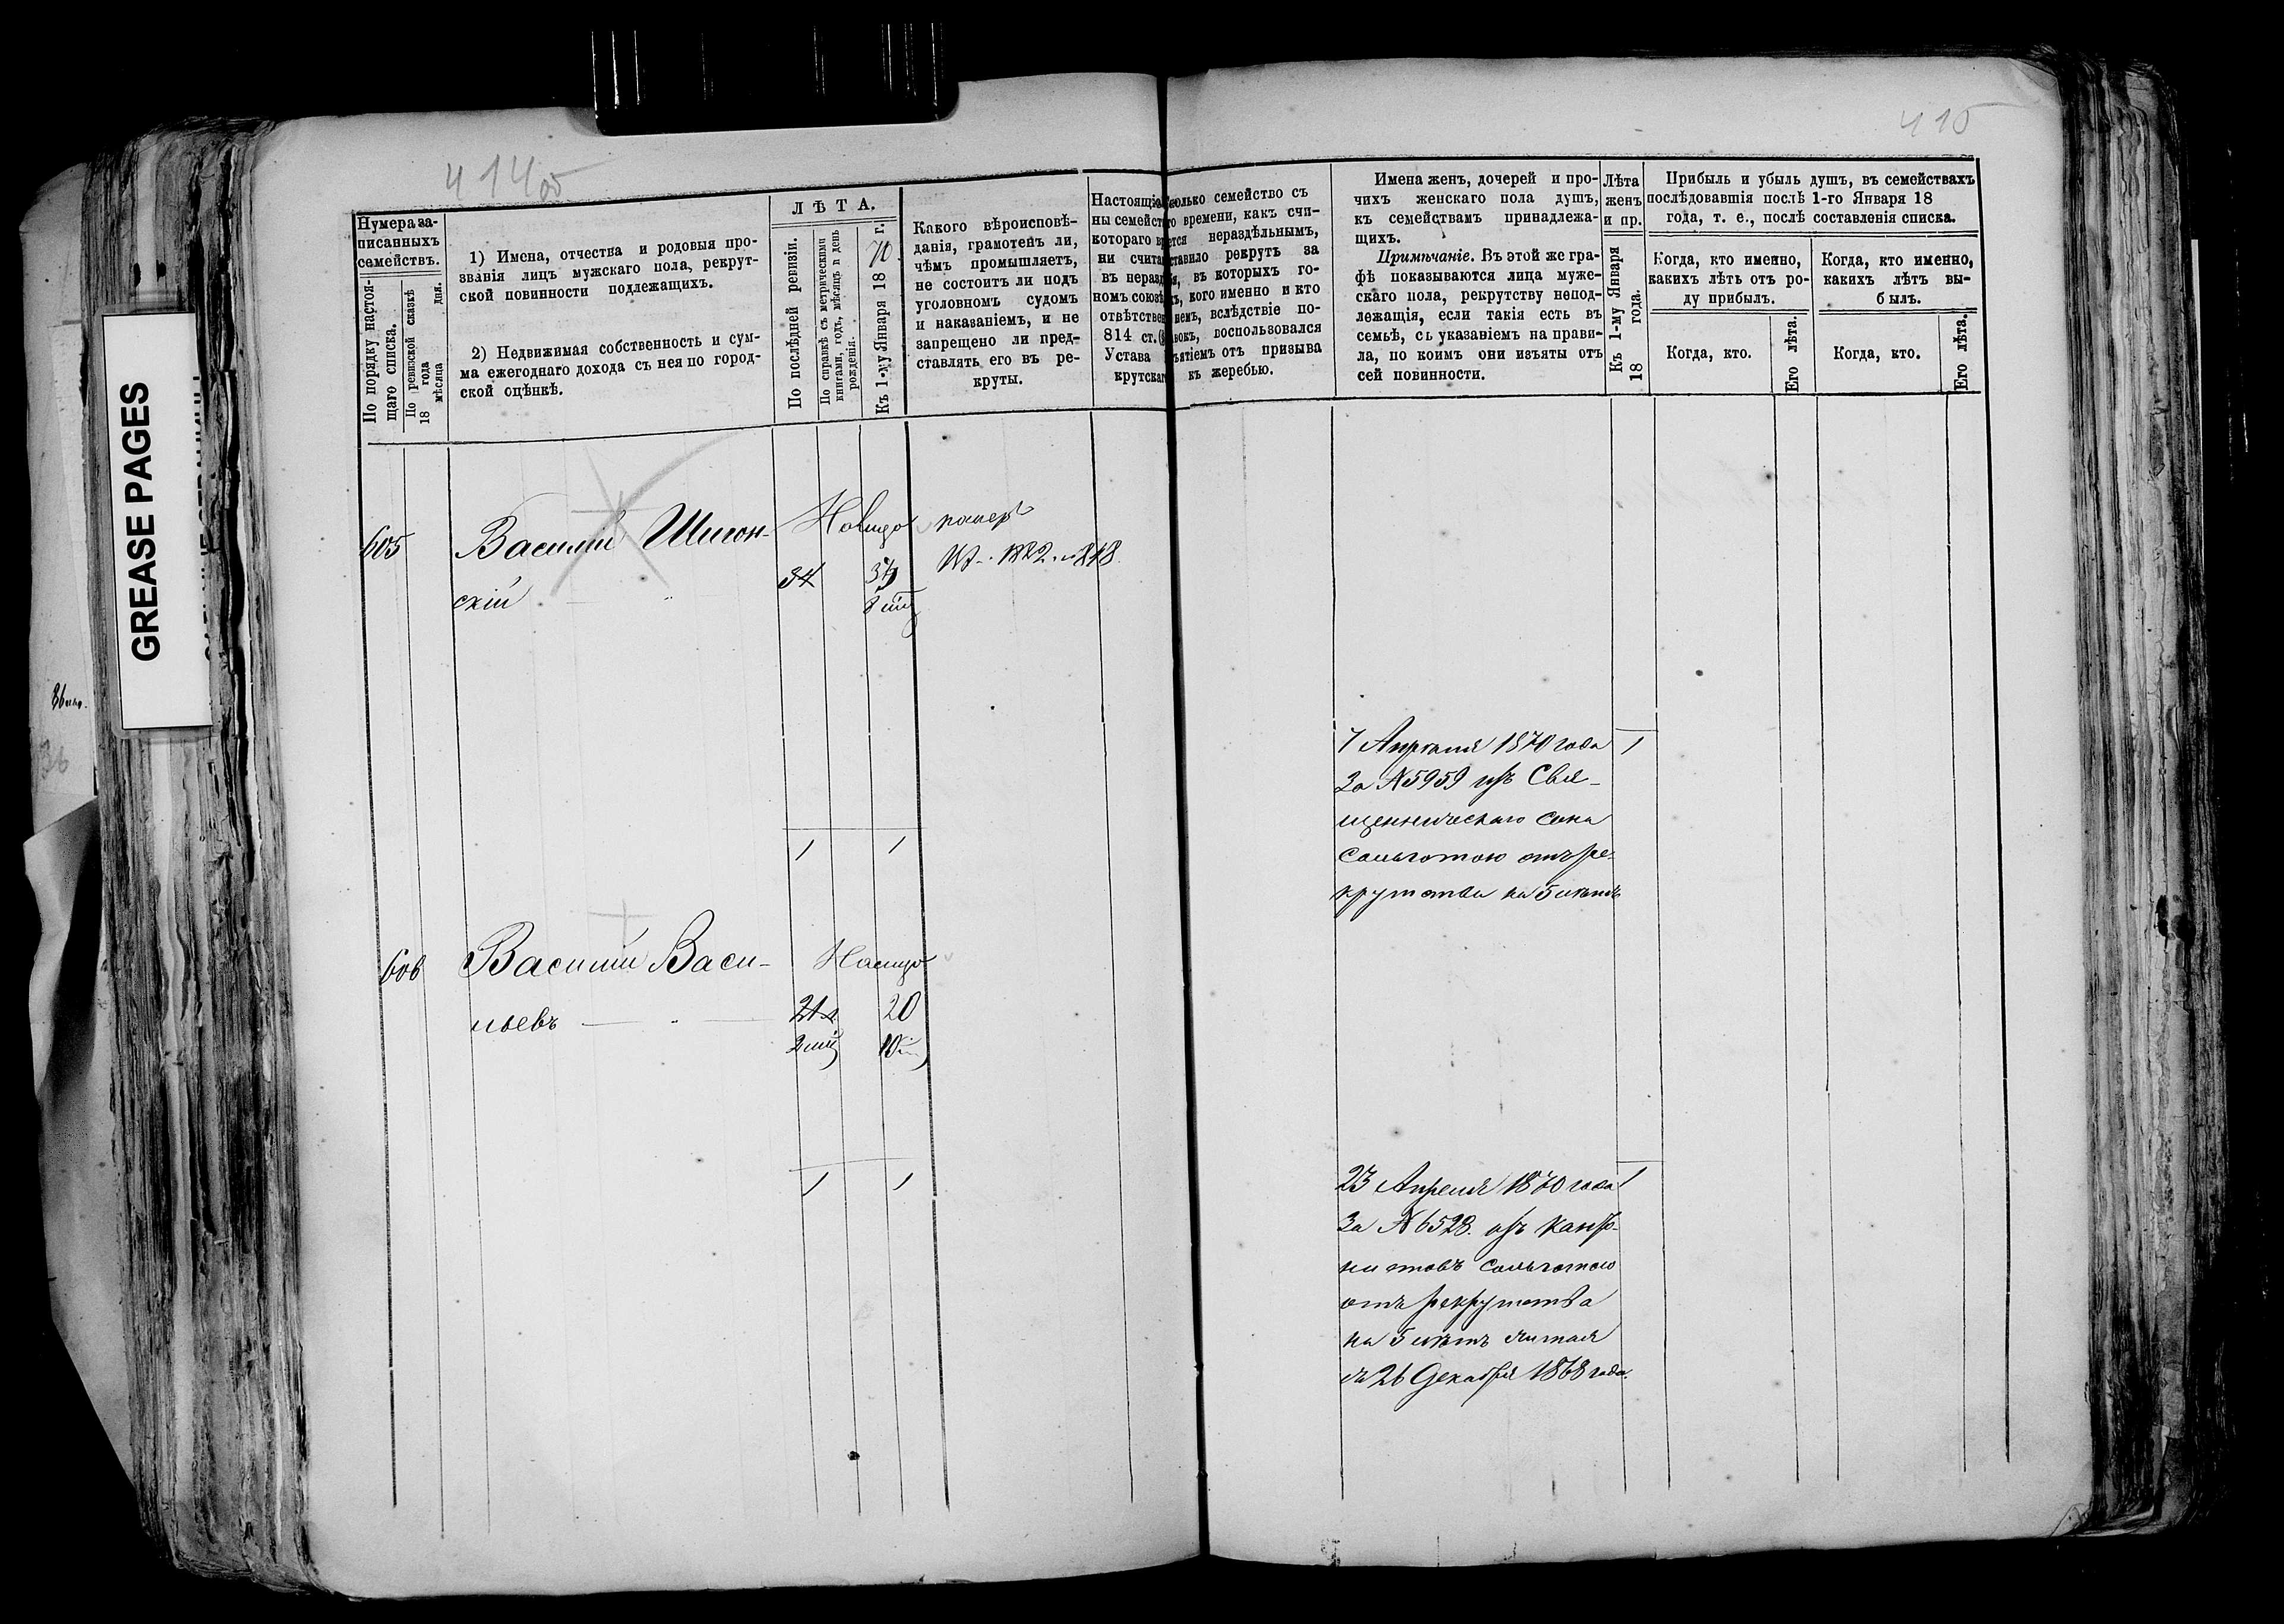 414 об
415
GREASE PAGES
Нумера за-
писанныхъ
семействъ.
По порядку настоя-
щаго списка.
По ревизской сказкѣ
18 года
мѣсяца дня.
1) Имена, отчества и родовыя про-
званія лицъ мужскаго пола, рекрут-
ской повинности подлежащихъ.
2) Недвижимая собственность и сум-
ма ежегоднаго дохода съ нея по город-
ской оцѣнкѣ.
ЛѢТА.
По послѣдней ревизіи.
По справкѣ съ метрическими
книгами, годъ, мѣсяцъ и день
рожденія.
Къ 1-му Января 1870 г.
Какого вѣроисповѣ-
данія, грамотенъ ли,
чѣмъ промышляетъ,
не состоитъ ли подъ
уголовномъ судомъ
и наказаніемъ, и не
запрещено ли пред-
ставлять его въ ре-
круты.
Настоящіо
ны семейст
котораго в
ни счита
въ нераз
номъ союз
отвѣтстве
814 ст.
Устава
крутскаг
колько семейство съ
го времени, какъ счи-
ется нераздѣльнымъ,
ставило рекрутъ за
я, въ которыхъ го-
ъ, кого именно и кто
немъ, вслѣдствіе по-
вокъ, воспользовался
ъятіемъ отъ призыва
къ жеребью.
Имена женъ, дочерей и про-
чихъ женскаго пола душъ,
къ семействамъ принадлежа-
щихъ.
Примѣчаніе. Въ этой же гра-
фѣ показываются лица муже-
скаго пола, рекрутству непод-
лежащія, если такія есть въ
семьѣ, съ указаніемъ на прави-
ла, по коимъ они изъяты отъ
сей повинности.
Лѣта
женъ
и пр.
Къ 1-му Января
18 года.
Прибыль и убыль душъ, въ семействахъ
послѣдовавшія послѣ 1-го Января 18
года, т. е., послѣ составленія списка.
Когда, кто именно,
какихъ лѣтъ отъ ро-
ду прибылъ.
Когда, кто.
Его лѣта.
Когда, кто именно,
какихъ лѣтъ вы-
былъ.
Когда, кто.
Его лѣта.
605
Василій Шигон-
скій
34
1 1
7 Апреля 1870 года 1
За №5959 изъ Свя-
щенническаго сана
сольготою отъ ре-
крутства на 5 лѣтъ
606
Василій Васи-
льевъ
20
1 1
23 Апреля 1870 года 1
За №6528. изъ канто-
нистовъ сольготою
отъ рекрутства
на 5 лѣтъ считая
съ 26 Декабря 1868 года.